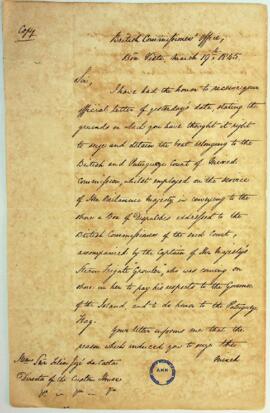 Copy
British Commissioners' Office,
Bôa Vista, March 19th 1845.
Sir,
I have had the honor to receive your
official letter of yesterday's date, stating the
grounds on which you have thought it right
to seize and detain the boat belonging to the
British and Portuguese Court of Mixed
Commission, whilst employed on the service
of Her Britannic Majesty in conveying to the
Shore a Box of Dispatches addressed to the
British Commissioners of the said Court,
accompanied by the Captain of Her Majesty's
Steam Frigate "Growler," who was coming on
Shore in her to pay his respects to the Governor
of the Island, and to do honor to the Portuguese
Flag.
Your letter informs me that the
reason which induced you to seize this
Senr
Director of the Custom House